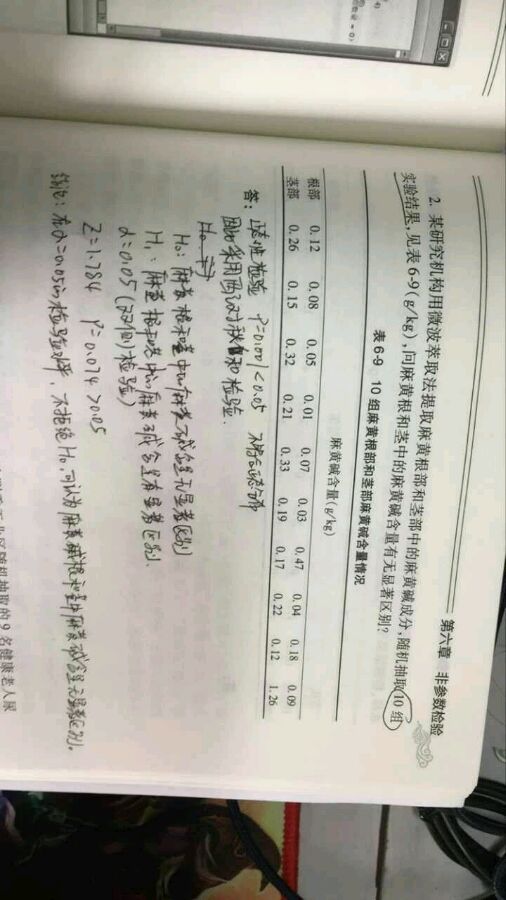 第六章 非参数检验
2. 某研究机构用微波萃取法提取麻黄根部和茎部中的麻黄碱成分,随机抽取10组
实验结果,见表6-9(g/kg),问麻黄根和茎中的麻黄碱含量有无显著区别?
表6-9 10组麻黄根部和茎部麻黄碱含量情况
麻黄碱含量(g/kg)
根部 0.12 0.08 0.05 0.01 0.07 0.03 0.47 0.04 0.18 0.09
茎部 0.26 0.15 0.32 0.21 0.33 0.19 0.17 0.22 0.12 1.26
答: 正态性检验 P=0.001<0.05 不符合正态分布
因此采用两组对秩和检验.
H₀:麻黄根和茎中的麻黄碱含量无显著区别
H₁:麻黄根和茎中的麻黄碱含量有显著区别.
α=0.05(双侧检验)
Z=1.784 P=0.074>0.05
结论:在α=0.05的检验水平,不拒绝H₀,可认为麻黄根和茎中麻黄碱含量无显著区别。
随机抽取的9名健康老人尿